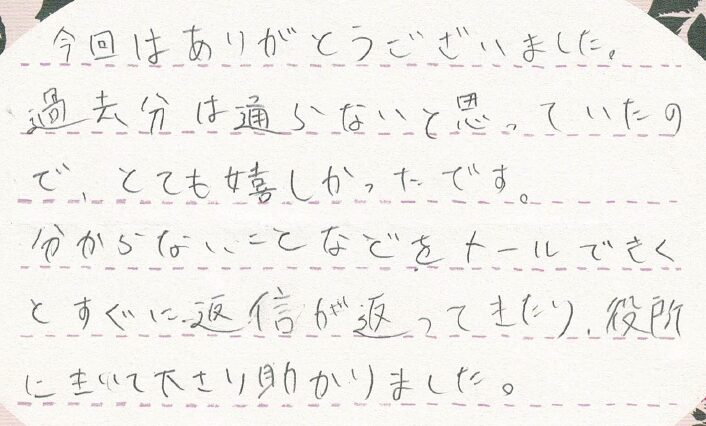 今回はありがとうございました。
過去分は通らないと思っていたの
で、とても嬉しかったです。
分からないことなどをメールできく
とすぐに返信が返ってきたり、役所
に書いて下さり助かりました。